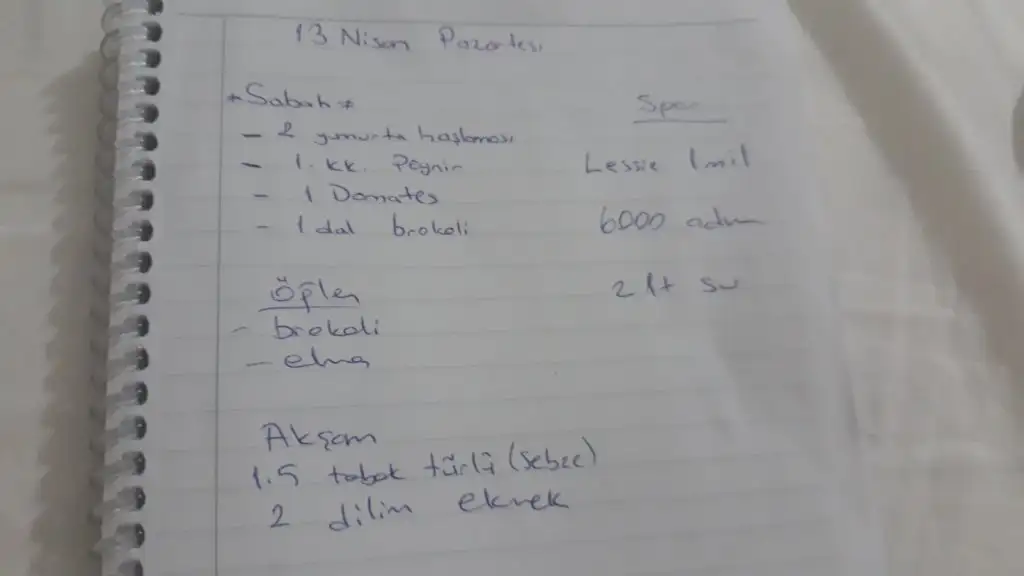 13 Nisan Pazartesi
* Sabah *
- 2 yumurta haşlaması
- 1. kk. Peynir
- 1 Domates
- 1 dal brokoli
Öğlen
- brokoli
- elma
Akşam
1.5 tabak türlü (sebze)
2 dilim ekmek
Spor
Lessie 1 mil
6000 adım
2 lt su